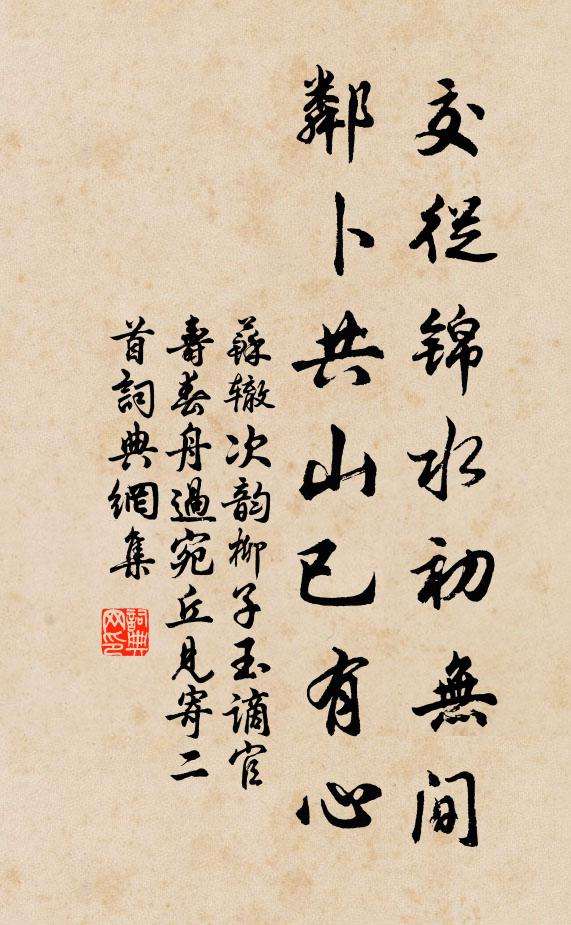 交從錦水初無間
鄰卜共山已有心
蘇轍次韵柳子玉謫官
壽春舟過宛丘見寄二
首詞典網集
詞典
网印